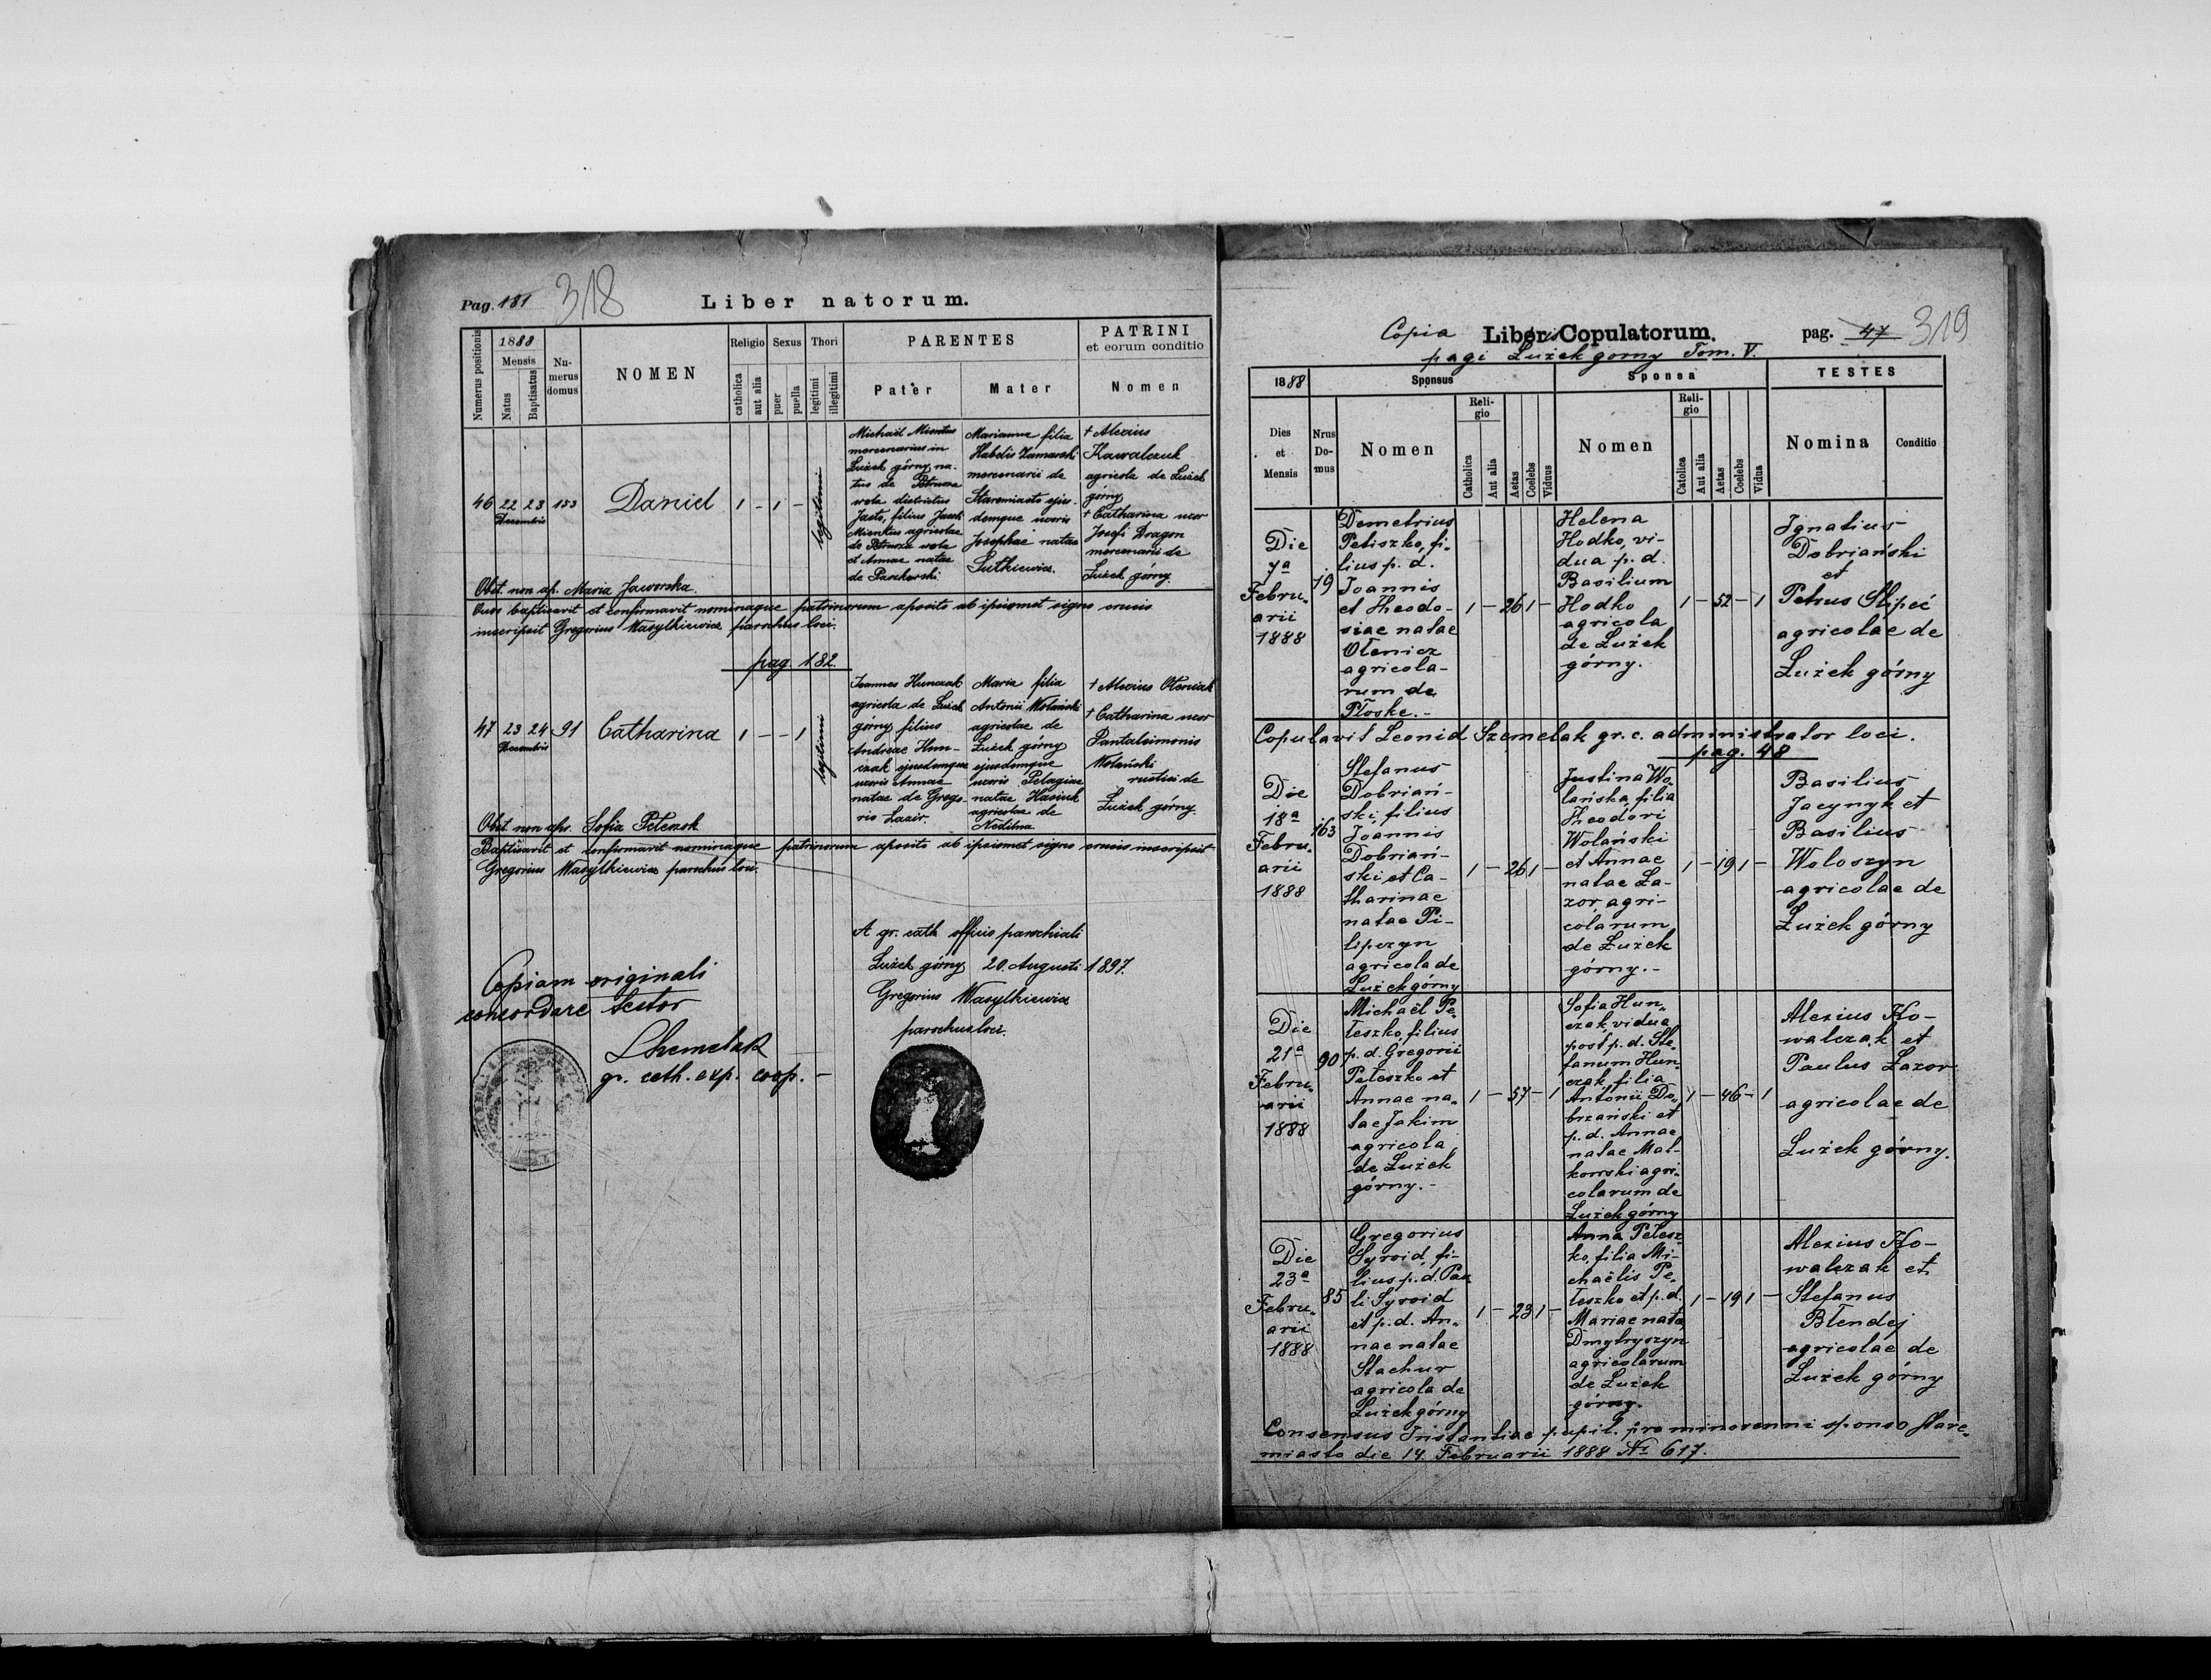 Pag. 181 318 Liber natorum.
Numerus positionis
1888
Mensis
Natus
Baptisatus
Nu-
merus
domus
NOMEN
Religio
catholica
aut alia
Sexus
puer
puella
Thori
legitimi
illegitimi
PARENTES
Pater
Mater
PATRINI
et eorum conditio
Nomen
46 22 23 153 Daniel 1 - 1 - legitimi
Decembris
Michaël Mientus
mercenarius in
Łużek górny, na-
tus de
wola districtus
Jasło, filius Jacobi
Mientus agricolae
de wola
et Annae natae
de
Marianna filia
mercenarii de
Staremiasto ejus-
demque uxoris
Josephae natae
Lutkiewicz.
+ Alexius
Kawalczuk
agricola de Łużek
górny
+ Catharina uxor
Josefi Dragon
mercenarii de
Łużek górny.
Obst. non ap. Maria Jaworska.
Quos baptisavit et confirmavit nominaque patrinorum aposito ab ipsismet signo crucis
inscripsit Gregorius Wasylkiewicz parochus loci.
pag. 182
47 23 24 91 Catharina 1 - - 1 legitimi
Decembris
Joannes Hunczak
agricola de Łużek
górny filius
Andreae Hun-
czak ejusdemque
uxoris Annae
natae de Grego-
rio Lazir.
Maria filia
Antonii Wolański
agricolae de
Łużek górny
ejusdemque
uxoris Pelagiae
natae Hasiuk
agricolae de
Nedilna
+ Alexius Oleniak
+ Catharina uxor
Pantaleimonis
Wolański
rustici de
Łużek górny.
Obst. non apr. Sofia Peleszok
Baptisavit et confirmavit nominaque patrinorum aposito ab ipsismet signo crucis inscripsit
Gregorius Wasylkiewicz parochus loci.
A gr. cath. officio parochiali
Łużek górny 20. Augusti 1897.
Gregorius Wasylkiewicz
parochus loci.
Copiam originali
concordare testor
gr. cath. exp. coop. -
Copia Libri Copulatorum. pag. 47 319
pagi Łużek gorny Tom. V.
1888
Dies
et
Mensis
Nrus
Do-
mus
Sponsus
Nomen
Reli-
gio
Catholica
Aut alia
Aetas
Coelebs
Viduus
Sponsa
Nomen
Reli-
gio
Catolica
Aut alia
Aetas
Coelebs
Vidua
TESTES
Nomina
Conditio
Die
7a
Febru-
arii
1888
79
Demetrius
Peliszko, fi-
lius p. d.
Joannis
et Theodo-
siae natae
Olenicz
agricola-
rum de
Płoske. -
1 - 26 1 -
Helena
Hodko, vi-
dua p. d.
Basilium
Hodko
agricola
de Łużek
górny.
1 - 52 - 1
Ignatius
Dobriański
et
Petrus Slipeć
agricolae de
Łużek górny
Copulavit Leonid Szemelak gr. c. administrator loci.
pag. 48
Die
18a
Febru-
arii
1888
163
Stefanus
Dobriań-
ski, filius
Joannis
Dobriań-
ski et Ca-
tharinae
natae Pi-
lipczyn
agricola de
Łużek górny
1 - 26 1 -
Justina Wo-
lańska filia
Theodori
Wolański
et Annae
natae La-
zor agri-
colarum
de Łużek
górny. -
1 - 19 1 -
Basilius
Jacynyk et
Basilius
Woloszyn
agricolae de
Łużek górny
Die
21a
Febru-
arii
1888
90
Michaël Pe-
leszko, filius
p. d. Gregorii
Peteszko et
Annae na-
tae Jakim
agricola
de Łużek
górny. -
1 - 57 - 1
Sofia Hun-
czak vidua
post p. d. Ste-
fanum Hun-
czak filia
Antonii Do-
brzański et
p. d. Annae
natae Mal-
kowski agri-
colarum de
Łużek górny
1 - 46 - 1
Alexius Ko-
walczak et
Paulus Lazor
agricolae de
Łużek górny.
Die
23a
Febru-
arii
1888
85
Gregorius
Syroid, fi-
lius p. d. Pau
li Syroid
et p. d. An-
nae natae
Stachur
agricola de
Łużek górny
1 - 23 1 -
Anna Pelesz-
ko, filia Mi-
chaëlis Pe-
leszko et p. d.
Mariae nata
Dmytryszyn
agricolarum
de Łużek
górny.
1 - 19 1 -
Alexius Ko-
walczak et
Stefanus
Błendej
agricolae de
Łużek górny
Consensus Instantiae pupil. pro minorenni sponso Stare-
miasto die 14. Februarii 1888 No 617.